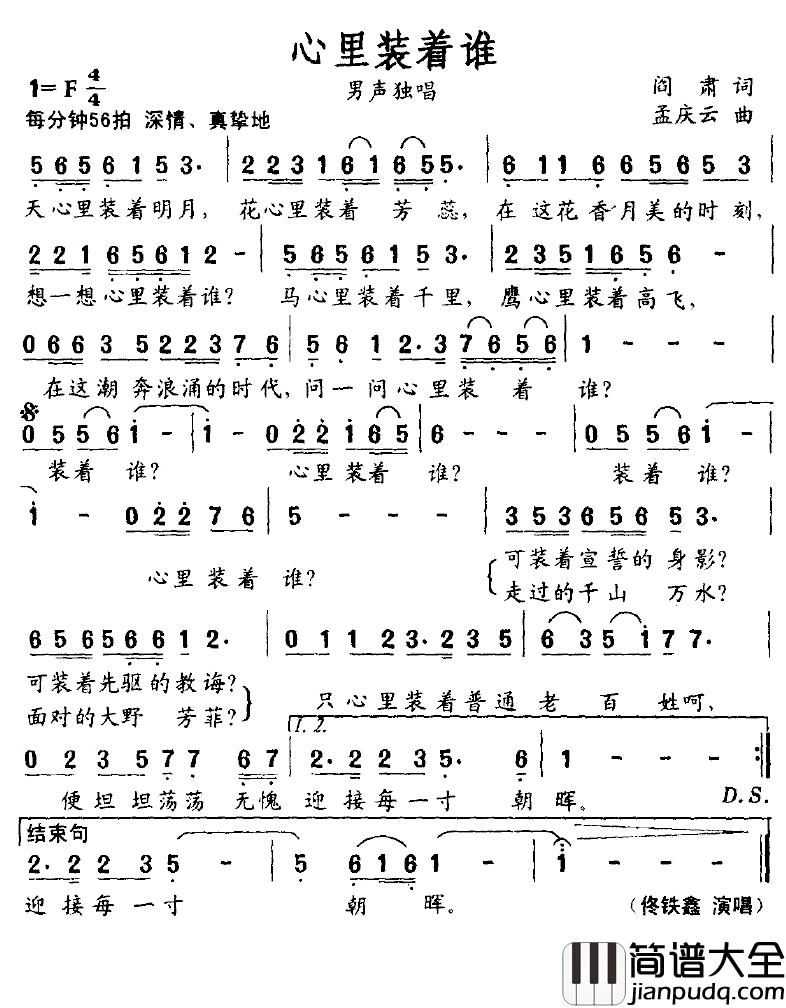 心里装着谁
1= F 4/4
男声独唱
阎 肃 词
每分钟56拍 深情、真挚地
孟庆云 曲
5 6 5 6 1 5 3. | 2 2 3 1 6 1 6 5 5. | 6 1 1 6 6 5 6 5 3
天心里装着明月, 花心里装着 芳蕊, 在 这花 香月美的时刻,
2 2 1 6 5 6 1 2 - | 5 6 5 6 1 5 3. | 2 3 5 1 6 5 6 -
想一想心里装着谁? 马心里装着千里, 鹰心里装着高飞,
0 6 6 3 5 2 2 3 7 6 | 5 6 1 2. 3 7 6 5 6 | 1 - -
在这潮 奔浪涌的时代, 问一问心里装 着 谁?
0 5 5 6 1 - | 1 - 0 2 2 1 6 5 | 6 - - | 0 5 5 6 1 -
装着 谁? 心里装着 谁? 装着 谁?
1 - 0 2 2 7 6 | 5 - - | 3 5 3 6 5 6 5 3.
心里装着 谁? 可装着宣誓的身影?
走过的千山 万水?
6 5 6 5 6 6 1 2. | 0 1 1 2 3. 2 3 5 | 6 3 5 1 7 7.
可装着先驱的教诲?
面对的大野 芳菲? 只心里装着普通老 百 姓呵,
1. 2.
0 2 3 5 7 7 6 7 | 2. 2 2 3 5. 6 | 1 - - - :|
便坦 坦荡荡 无愧 迎 接每一寸 朝 晖。 D.S.
结束句
2. 2 2 3 5 - | 5 6 1 6 1 - | 1 - - - ||
迎 接每 一寸 朝 晖。 (佟铁鑫 演唱)
简谱大全
jianpudq.com